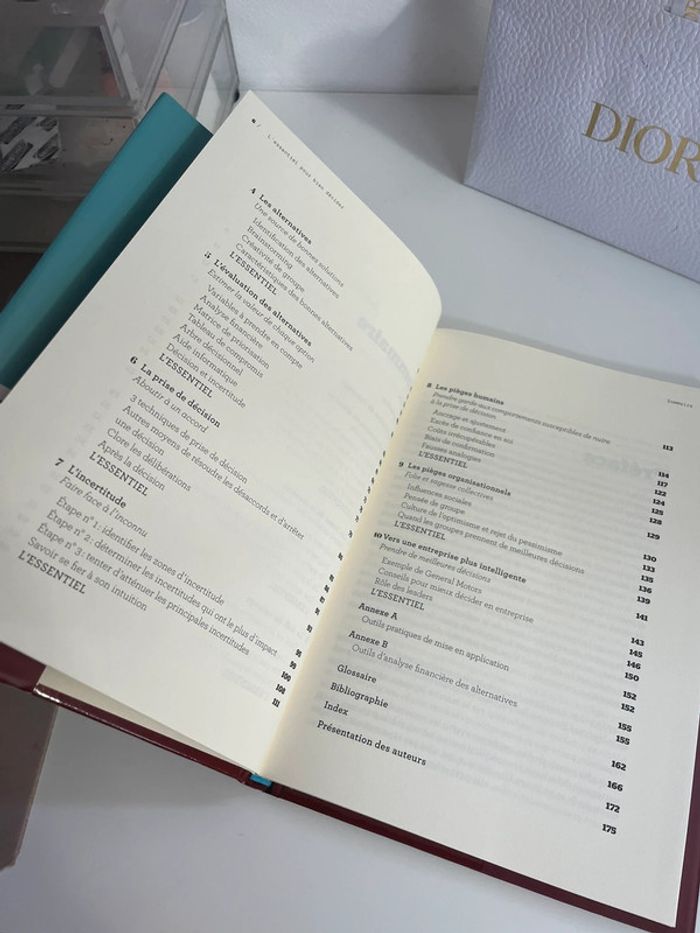 L'essentiel pour bien décider
4 Les alternatives
Une source de bonnes solutions
Identification des alternatives
Brainstorming
Créativité de groupe
Caractéristiques des bonnes alternatives
L'ESSENTIEL
5 L'évaluation des alternatives
Estimer la valeur de chaque option
Variables à prendre en compte
Analyse financière
Matrice de priorisation
Tableau de compromis
Arbre décisionnel
Aide informatique
Décision et incertitude
L'ESSENTIEL
6 La prise de décision
Aboutir à un accord
3 techniques de prise de décision
Autres moyens de résoudre les désaccords et d'arrêter
une décision
Clore les délibérations
Après la décision
L'ESSENTIEL
7 L'incertitude
Faire face à l'inconnu
Étape n° 1 : identifier les zones d'incertitude
Étape n° 2 : déterminer les incertitudes qui ont le plus d'impact
Étape n° 3 : tenter d'atténuer les principales incertitudes
Savoir se fier à son intuition
L'ESSENTIEL
95
99
100
108
111
Sommaire
8 Les pièges humains
Prendre garde aux comportements susceptibles de nuire
à la prise de décision
Ancrage et ajustement
Excès de confiance en soi
Coûts irrécupérables
Biais de confirmation
Fausses analogies
L'ESSENTIEL
113
114
117
122
124
125
128
129
9 Les pièges organisationnels
Folie et sagesse collectives
Influences sociales
Pensée de groupe
Culture de l'optimisme et rejet du pessimisme
Quand les groupes prennent de meilleures décisions
L'ESSENTIEL
130
133
135
136
139
141
10 Vers une entreprise plus intelligente
Prendre de meilleures décisions
Exemple de General Motors
Conseils pour mieux décider en entreprise
Rôle des leaders
L'ESSENTIEL
143
145
146
150
Annexe A
Outils pratiques de mise en application
152
152
Annexe B
Outils d'analyse financière des alternatives
155
155
Glossaire
162
Bibliographie
166
Index
172
Présentation des auteurs
175
DIOR